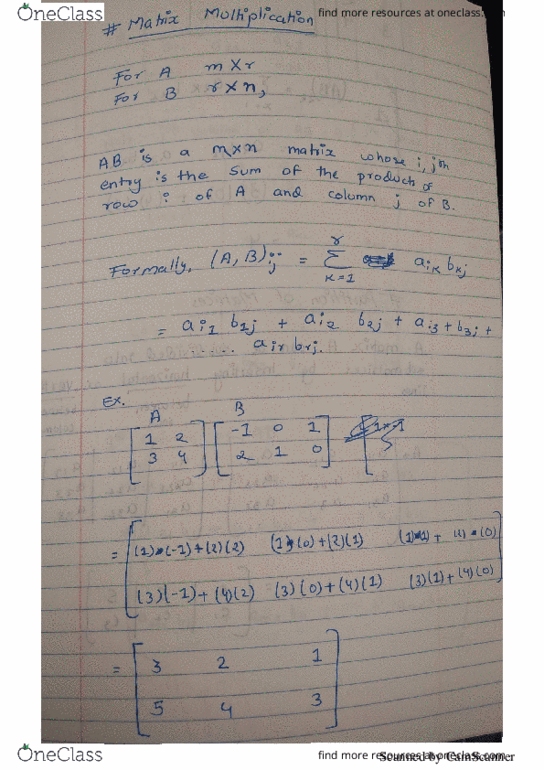 OneClass
find more resources at oneclass.com
# Matrix Multiplication
For A m X r
For B r x n,
AB is a mxn matrix whose i, jth
entry is the sum of the product of
row i of A and column j of B.
Formally, (A, B)ij = r Σ k=1 aik bkj
= ai1 b1j + ai2 b2j + ai3 + b3j +
...... air brj.
Ex.
A B
[1 2 [-1 0 1
3 4] 2 1 0]
= [(1)*(-1)+(2)(2) (1)*(0)+(2)(1) (1*1) + (2)*(0)
(3)(-1)+(4)(2) (3)(0)+(4)(1) (3)(1)+(4)(0)]
= [3 2 1
5 4 3]
OneClass
find more resources at oneclass.com
Scanned by CamScanner